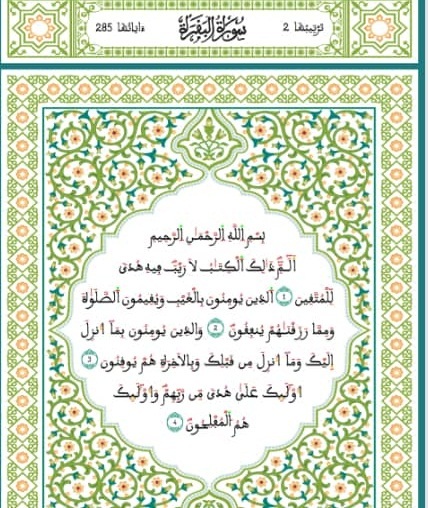 ترتيبها 2 سورة البقرة وآياتها 285
بِسْمِ اللَّهِ الرَّحْمَٰنِ الرَّحِيمِ
أَلَٓمِّٓ ذَٰلِكَ اَلْكِتَٰبُ لَا رَيْبَ فِيهِ هُدىً
لِّلْمُتَّقِينَ 1 اَلذِينَ يُومِنُونَ بِالْغَيْبِ وَيُقِيمُونَ اَلصَّلَوٰةَ
وَمِمَّا رَزَقْنَٰهُمْ يُنفِقُونَ 2 وَالذِينَ يُومِنُونَ بِمَآ أُنزِلَ
إِلَيْكَ وَمَآ أُنزِلَ مِن قَبْلِكَ وَبِالَاخِرَةِ هُمْ يُوقِنُونَ 3
أُوْلَٰٓئِكَ عَلَىٰ هُدىً مِّن رَّبِّهِمْ وَأُوْلَٰٓئِكَ
هُمُ اُلْمُفْلِحُونَ 4